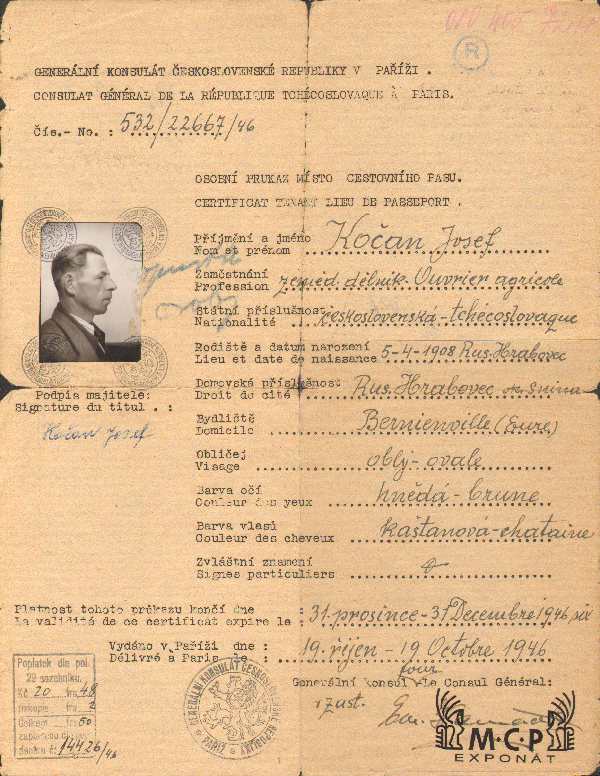 R
GENERÁLNÍ KONSULÁT ČESKOSLOVENSKÉ REPUBLIKY V PAŘÍŽI.
CONSULAT GÉNÉRAL DE LA RÉPUBLIQUE TCHÉCOSLOVAQUE À PARIS.
Čís.- No. : 532/22667/46
OSOBNÍ PRUKAZ MÍSTO CESTOVNÍHO PASU.
CERTIFICAT TENANT LIEU DE PASSEPORT.
Příjmění a jméno
Nom et prénom Kočan Josef
Zaměstnání
Profession zeměd. dělník-Ouvrier agricole
Státní příslušnost
Nationalité československá-tchécoslovaque
Rodiště a datum narození
Lieu et date de naissance 5-4-1908 Rus. Hrabovec
Domovská příslušnost
Droit de cité Rus. Hrabovec ok. Snina
Podpis majitele:
Signature du titul. :
Kočan Josef
Bydliště
Domicile Bernienville (Eure)
Obličej
Visage oblý-ovale
Barva očí
Couleur des yeux hnědá-brune
Barva vlasů
Couleur des cheveux kaštanová-chataine
Zvláštní znamení
Signes particuliers
Platnost tohoto průkazu končí dne : 31. prosince-31 Decembre 1946 six
La validité de ce certificat expire le :
Vydáno v Paříži dne : 19. říjen-19 Octobre 1946
Délivré a Paris le :
Generální konsul -Le Consul Général:
pour
zast.
Poplatek dle pol.
29 sazebníku.
Kč 20 frs 48
prirážka frs 2
Celkem frs 50
zaplaceno čís.
deníku č. 14426/46
GENERÁLNÍ KONSULÁT ČESKOSLOVENSKÉ REPUBLIKY PAŘÍŽ
M·C·P
EXPONÁT